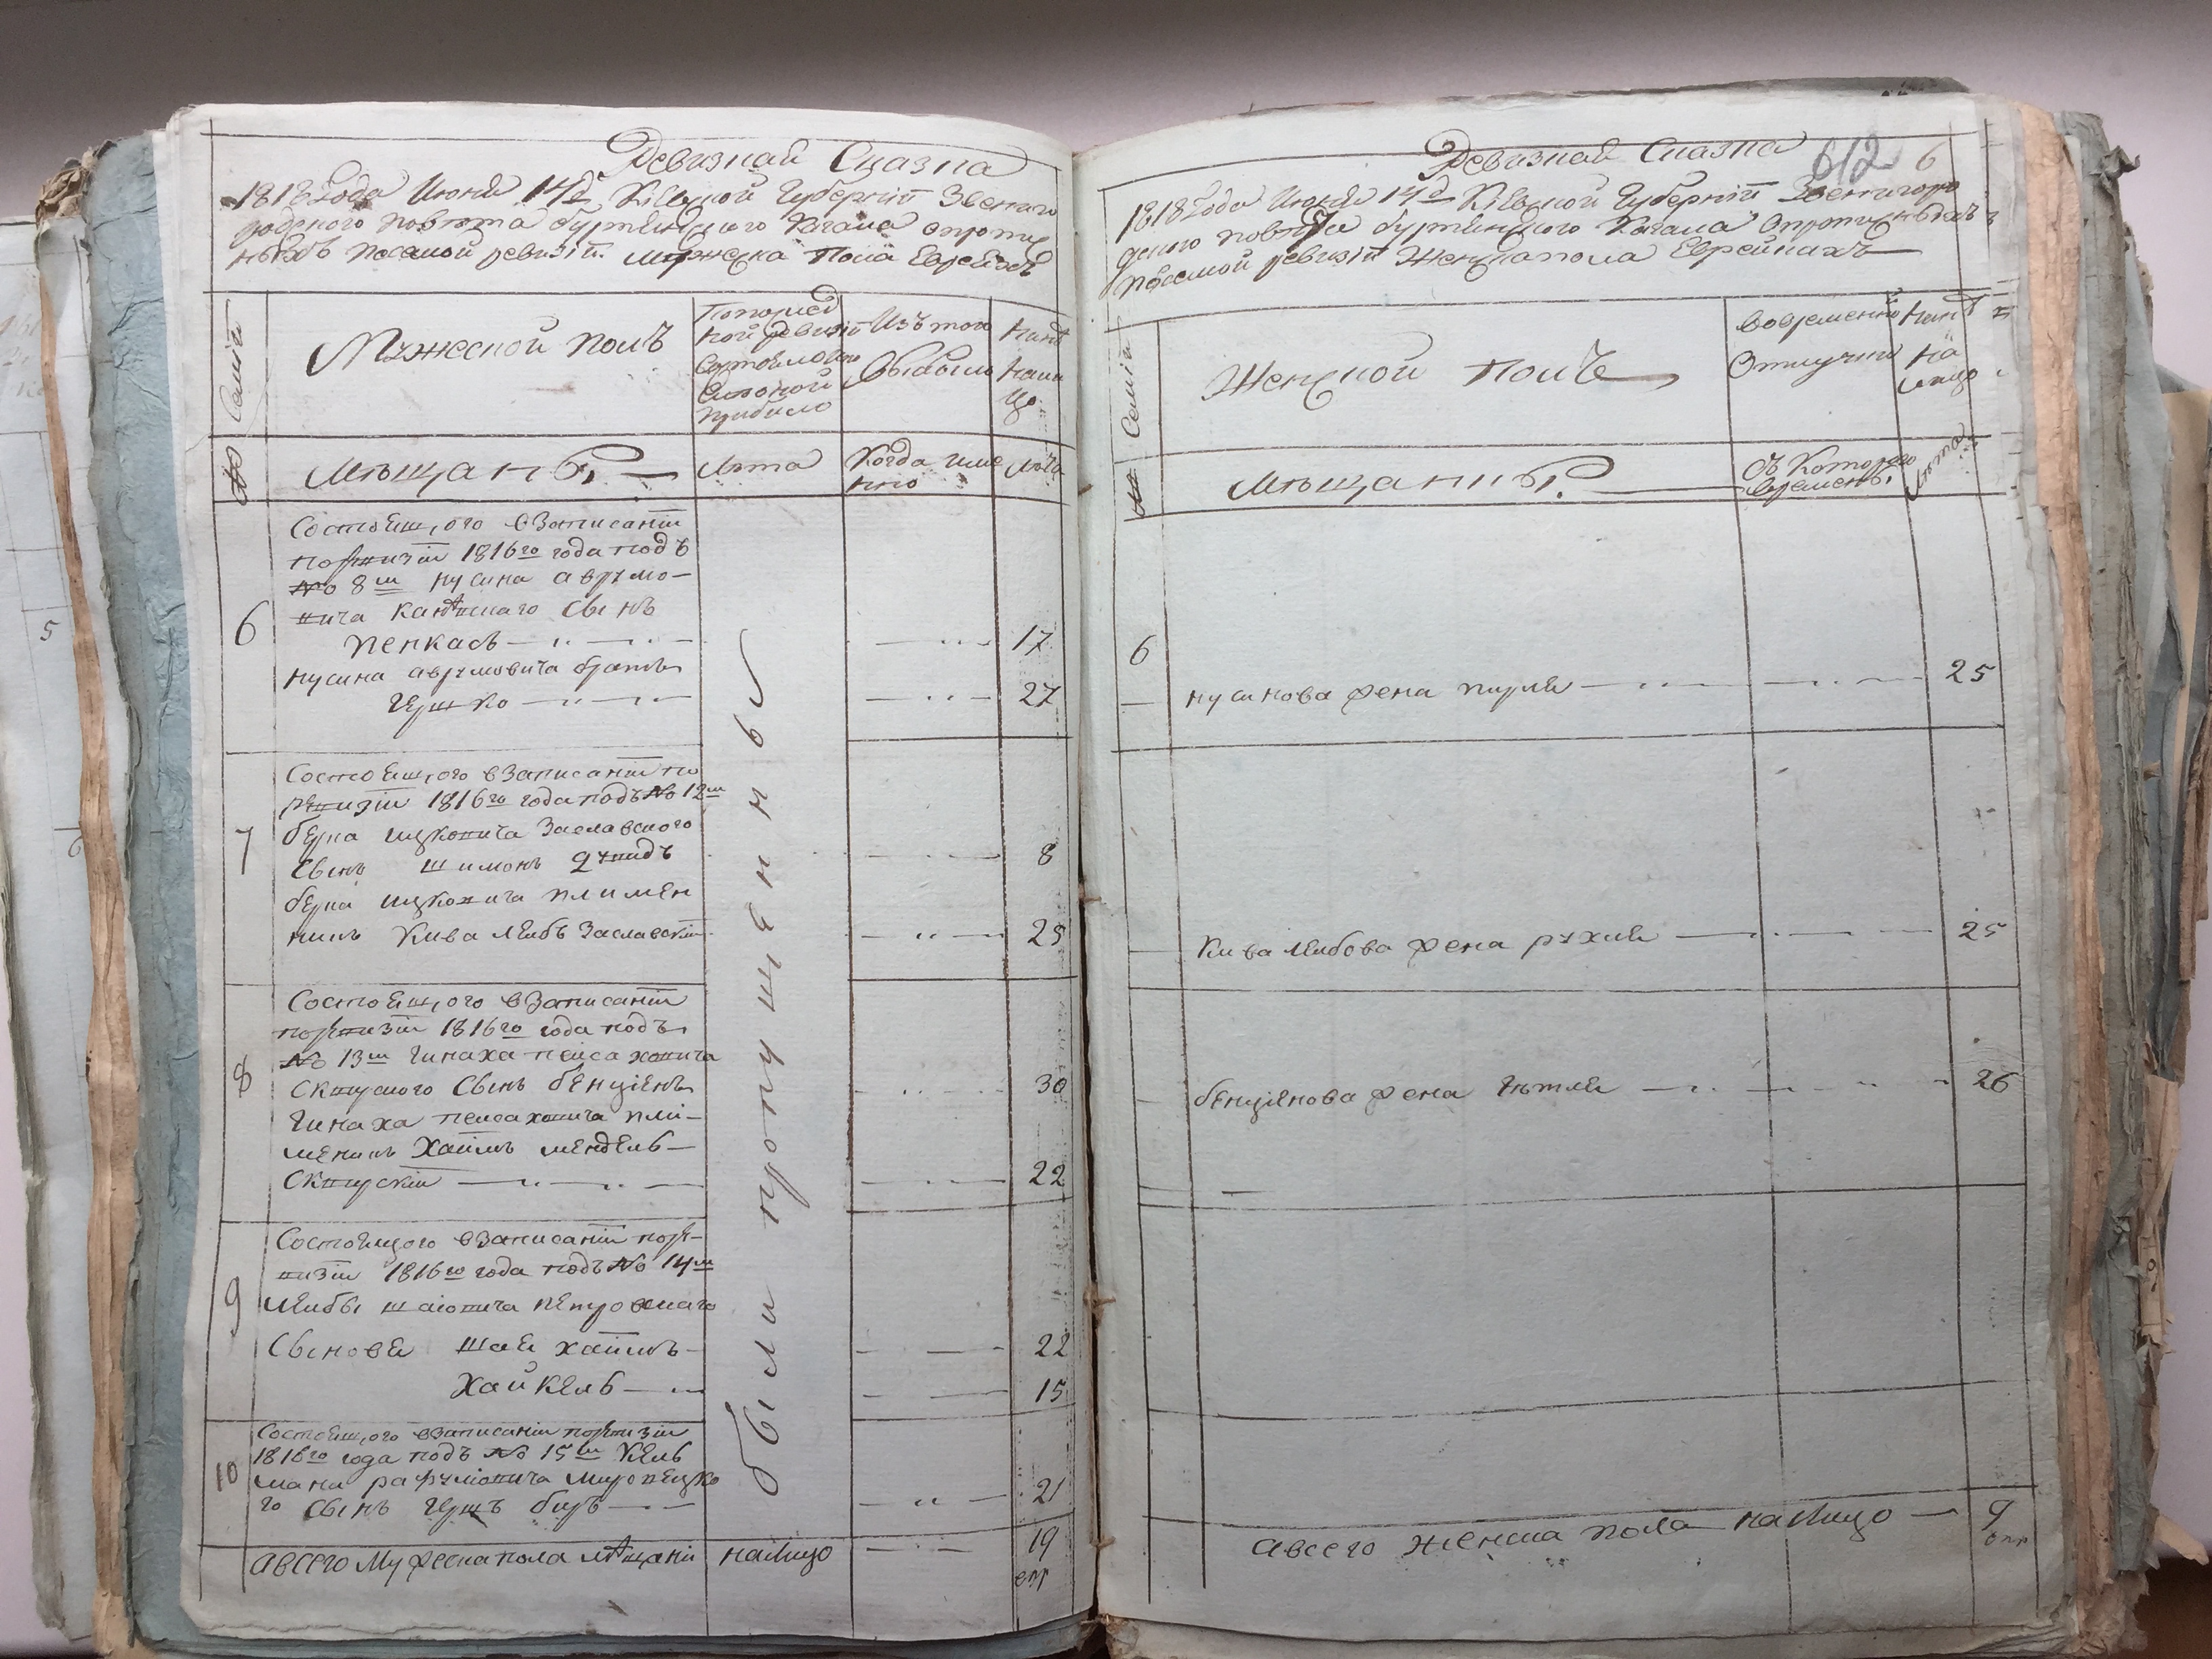 Ревизная Сказка
1818 года Июня 14 д. Кіевской Губерніи Звениго
родского повѣта буртянского Кагала
посемой ревизіи мужеска пола Евреяхъ
Семій
Мужеской полъ
По
ной ревизіи
Состояло
прибыло
Изъ того
выбыло
Нынѣ
нали
цо
№
Мѣщанъ
Лѣта
Когда име
нно
Лѣта
были пропущенны
Состоящ,ого в Записаніи
поревизіи 1816го года подъ
№ 8м нусина аврумо-
вича каневскаго Сынъ
6 Пенкасъ 17
нусина аврумовича братъ
Гершко 27
Состоящ,ого в Записаніи по
ревизіи 1816го года подъ № 12м
7 берка ицковича Заславского
Сынъ шимонъ Дувидъ 8
берка ицковича племен
никъ Кива Лейбъ Заславскій 25
Состоящ,ого в Записаніи
поревизіи 1816го года подъ
№ 13м Гинаха пейсаховича
8 Сквирского Сынъ бенціенъ 30
Гинаха пейсаховича пле-
меникъ Хаимъ мендель
Сквирскій 22
Состоящого в Записаніи поре-
визіи 1816го года подъ № 14м
9 Лейбы шаіовича петровскаго
Сыновя шая хаимъ 22
Хайкель 15
Состоящ,ого в Записаніи поревизіи
1816го года подъ № 15м Кель
10 мана рафуловича Мировецко
го Сынъ Гершъ беръ 21
авсего Мужеска пола мѣщанъ налицо 19
Ревизная Сказка
612 6
1818 года Июня 14 д. Кіевской Губерніи Звенигоро
дского повѣта буртянского Кагала
посемой ревизіи Женска пола Еврейкахъ
Семій
Женской полъ
Вовременной
Отлучки
Нынѣ
на
лицо
№
Мѣщанкъ
Съ Которого
времени
Лѣта
6
нусинова жена перля 25
Кива Лейбова жена рухля 25
бенціянова жена Гитля 26
авсего женска пола налицо 9